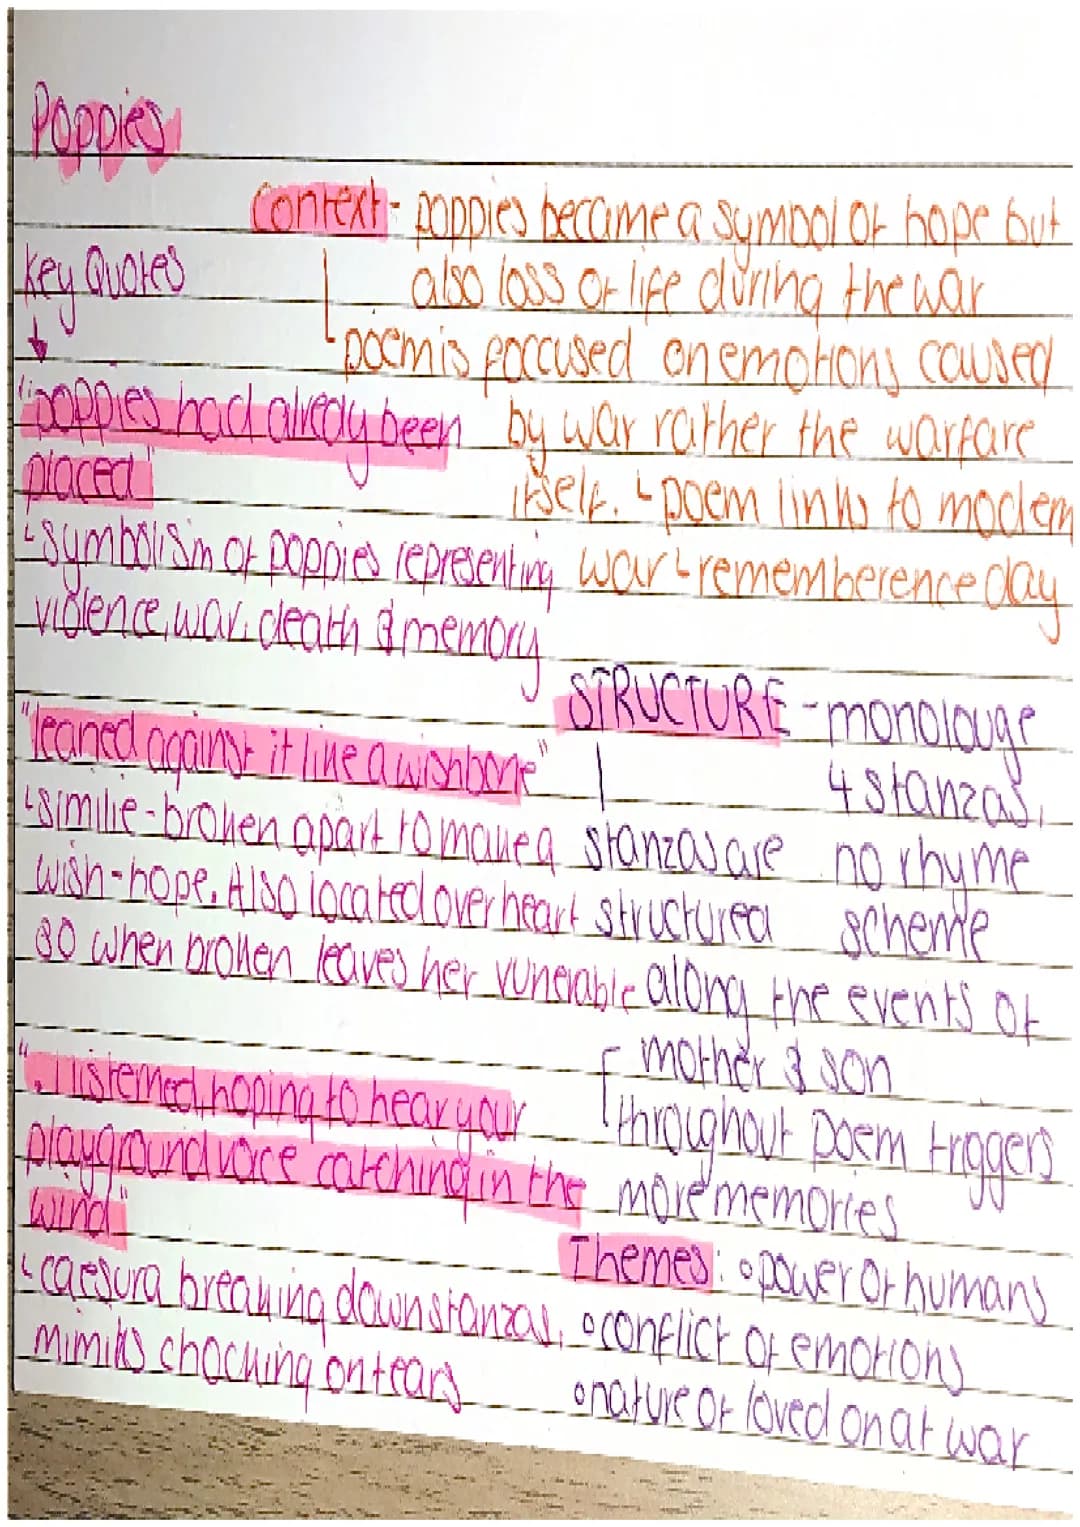 Poppies
Context - poppies became a symbol of hope but
also loss of life during the war
poem is foccused on emotions caused
by war rather the warfare
itself. ↳ poem links to modern
war ↳ rememberence day
Key Quotes
↓
"poppies had alredy been
placed"
↳ symbolism of poppies representing
violence, war, death & memory
"leaned against it like a wishbone"
↳ similie - broken apart to make a
wish - hope. Also located over heart
so when broken leaves her vunerable
". I listened, hoping to hear your
playground voice catching in the
wind"
↳ caesura breaking down stanzas,
mimiks chocking on tears
STRUCTURE - monolouge
4 stanzas,
no rhyme
scheme
stanzas are
structured
along the events of
mother & son
throughout poem triggers
more memories
Themes: ◦ power of humans
◦ conflict of emotions
◦ nature of loved on at war